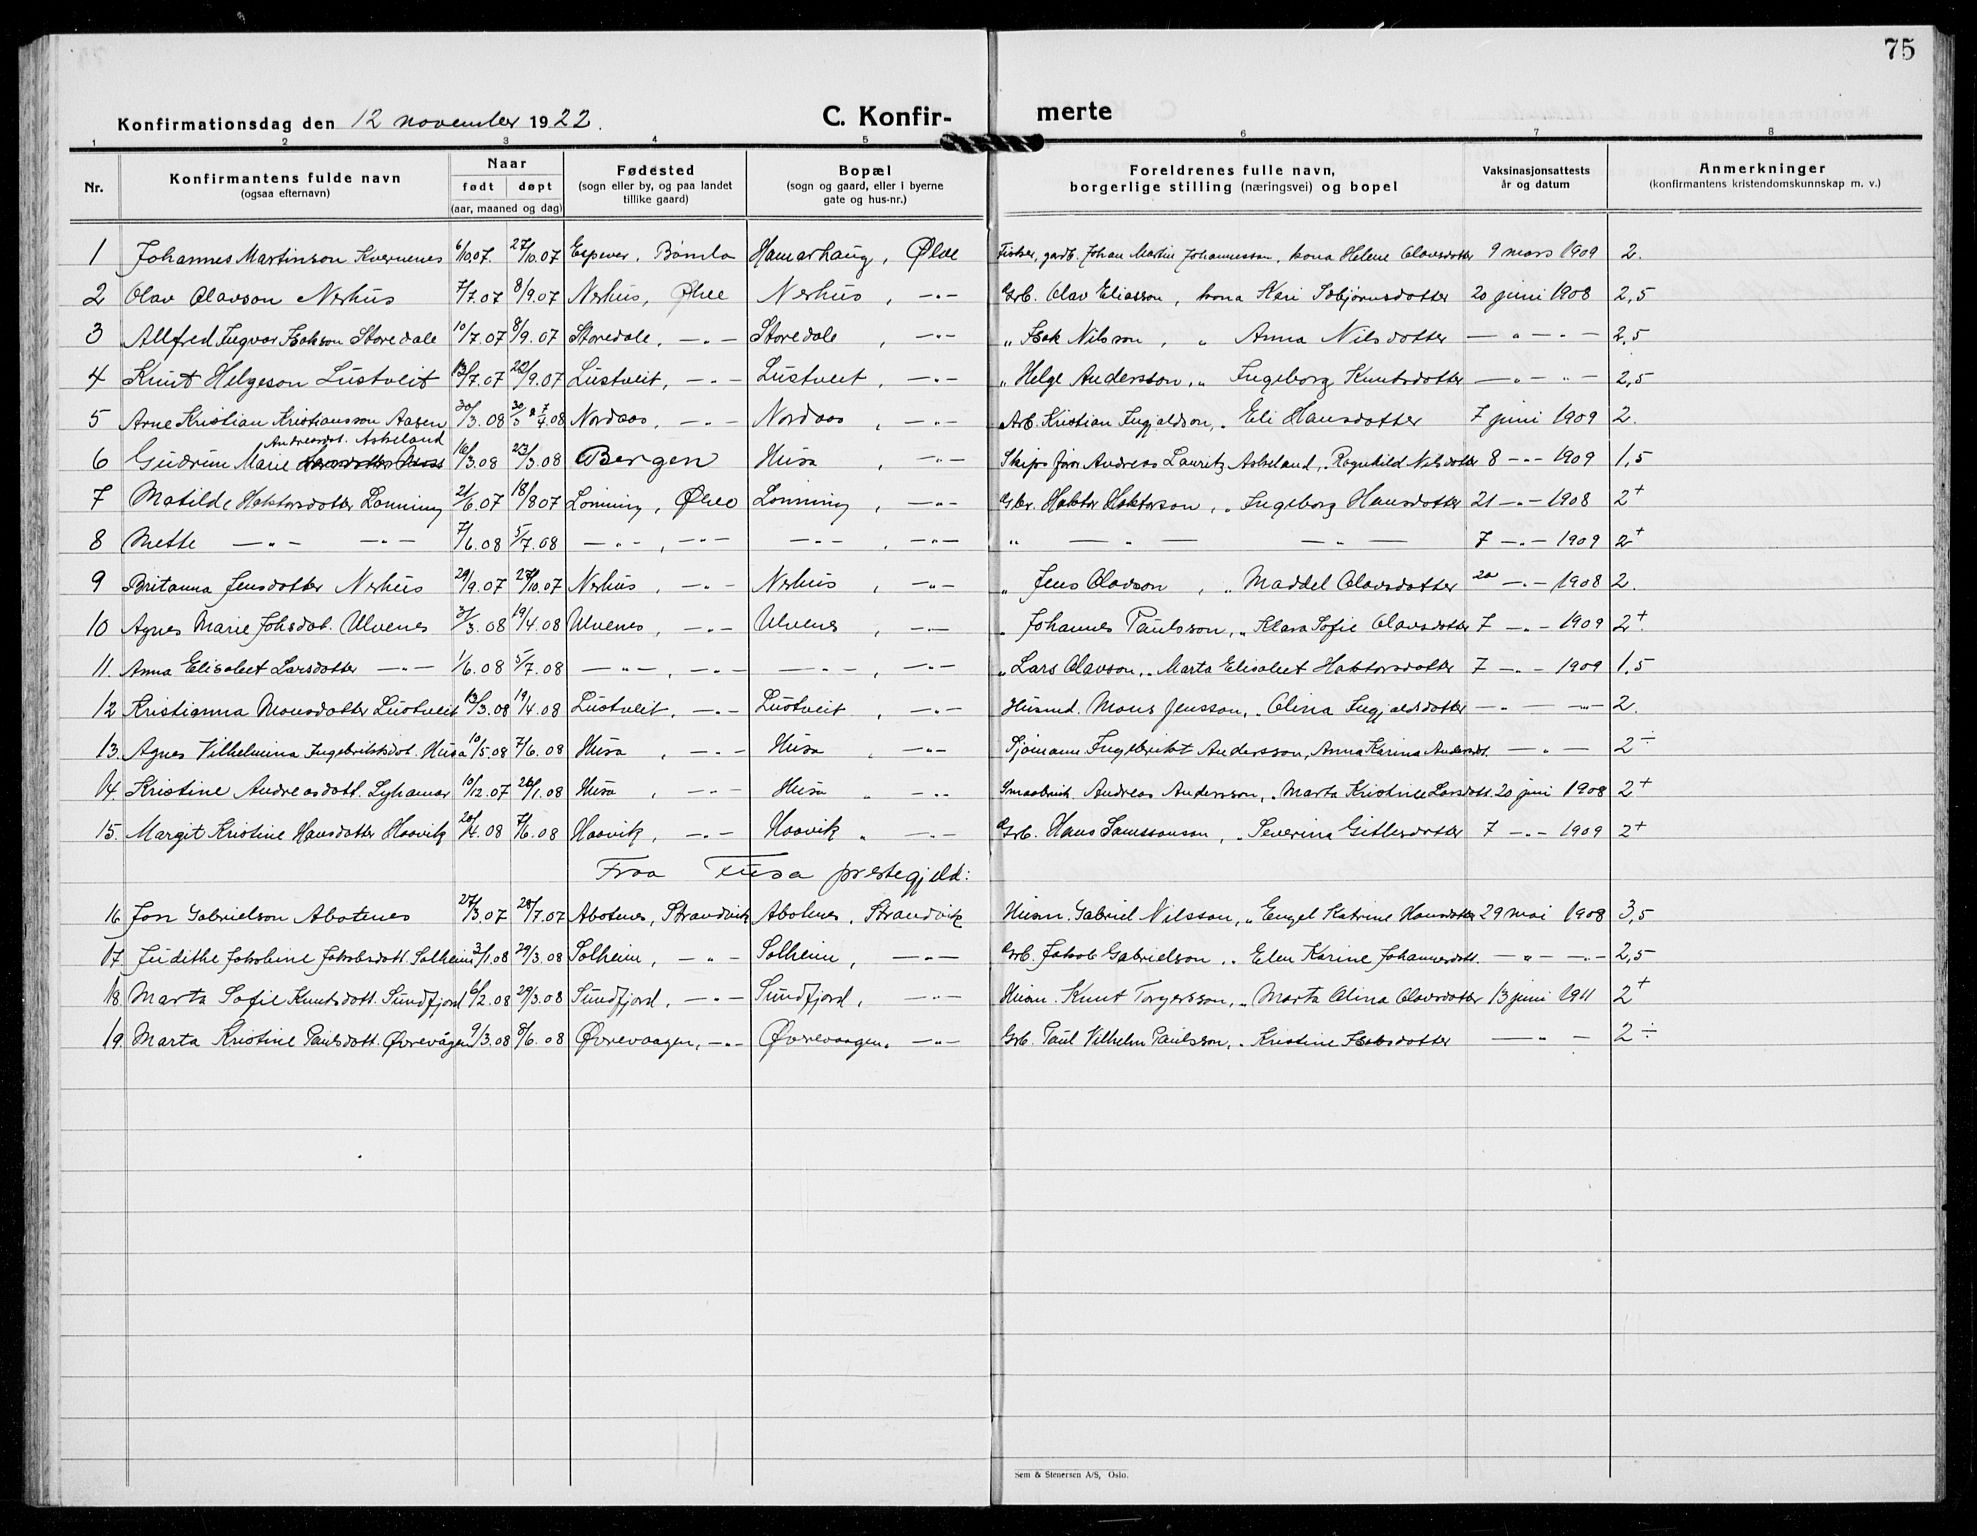 75
Konfirmationsdag den 12 november 1922. C. Konfir- merte
1 2 3 4 5 6 7 8
Nr. Konfirmantens fulde navn (ogsaa efternavn) Naar født døpt (aar, maaned og dag) Fødested (sogn eller by, og paa landet tillike gaard) Bopæl (sogn og gaard, eller i byerne gate og hus-nr.) Foreldrenes fulle navn, borgerlige stilling (næringsvei) og bopel Vaksinasjonsattests år og datum Anmerkninger (konfirmantens kristendomskunnskap m. v.)
1 Johannes Martinson Kvernenes 6/10.07. 27/10.07 Espever, Bømlo Hamarhaug, Ølve Fisker, gardb. Johan Martin Johannesson, kona Helene Olavsdotter 9 mars 1909 2.
2 Olav Olavson Nerhus 7/7.07 8/9.07 Nerhus, Ølve Nerhus, -"- Grb. Olav Eliasson, kona Kari Sebjørnsdotter 20 juni 1908 2,5
3 Allfred Ingvar Isakson Storedale 10/7.07 8/9.07 Storedale, -"- Storedale, -"- " Isak Nilsson, " Anna Nilsdotter -"- - 2,5
4 Knut Helgeson Lustveit 13/7.07 22/9.07 Lustveit, -"- Lustveit, -"- " Helge Andersson, " Ingeborg Knutsdotter -"- "- 2,5
5 Arne Kristian Kristiansson Aasen 30/3.08 30/3 & 7/4.08 Nordaas, -"- Nordaas, -"- Arb. Kristian Ingjaldson, " Eli Hansdotter 7 juni 1909 2.
6 Gudrun Marie Andreasdt. Askeland 16/3.08 23/3.08 Bergen Husa, -"- Skipsfører Andreas Lauritz Askeland, " Ragnhild Nilsdotter 8 -"- 1909 1,5
7 Matilde Haktorsdotter Lønning 21/6.07 18/8 07 Lønning, Ølve Lønning, -"- Gbr. Haktor Haktorson, " Ingeborg Hansdotter 21 -"- 1908 2+
8 Mette -"- -"- 7/6.08 5/7.08 -"-, -"- -"-, -"- " -"- -"- 7 -"- 1909 2+
9 Britanna Jensdotter Nerhus 29/9.07 27/10.07 Nerhus, -"- Nerhus, -"- " Jens Olavson, " Maddel Olavsdotter 20 -"- 1908 2.
10 Agnes Marie Johsdot. Ulvenes 31/3.08 19/4.08 Ulvenes, -"- Ulvenes, -"- " Johannes Paulsson, " Klara Sofie Olavsdotter 7 -"- 1909 2+.
11. Anna Elisabet Larsdotter -"- 1/6.08 5/7.08 -"-, -"- -"-, -"- " Lars Olavson, " Marta Elisabet Haktorsdotter 7 -"- 1909 1,5
12 Kristianna Monsdotter Lustveit 13/3.08 19/4.08 Lustveit, -"- Lustveit, -"- Husmd. Mons Jensson, " Olina Ingjaldsdotter -"- -"- 2.
13. Agnes Vilhelmina Ingebriktsdot. Husa 10/5.08 7/6.08 Husa, -"- Husa, -"- Sjømann Ingebrikt Andersson, Anna Karina Andersdt. -"- 2÷
14. Kristine Andreasdott. Lyhamar 10/12.07 26/1.08 Husa, -"- Husa " -"- Smaabruk. Andreas Andersson, " Marta Kristine Larsdott. 20 juni 1908 2+
15. Margit Kristine Hansdotter Haavik 20/4.08 7/6.08 Haavik, -"- Haavik " -"- Grb. Hans Samssonson, " Severina Gitlesdotter 7 -"- 1909 2+
Fraa Fusa prestegjeld:
16. Jon Gabrielson Abotnes 27/3.07 28/7.07 Abotnes, Strandvik Abotnes, Strandvik Husm. Gabriel Nilsson, " Engel Katrine Hansdotter 29 mai 1908 3,5
17. Judithe Jakobine Jakobsdott. Solheim 3/1.08 29/3.08 Solheim, -"- Solheim, -"- Grb. Jakob Gabrielson, " Elen Karine Johannesdott. -"- -"- 2,5
18. Marta Sofie Knutsdott. Sundfjord 6/2.08 29/3.08 Sundfjord, -"- Sundfjord, -"- Husm. Knut Torgersson, " Marta Olina Olavsdotter 13 juni 1911 2+
19. Marta Kristine Paulsdott. Øvrevågen 9/3.08 8/6.08 Øvrevaagen, -"- Øvrevaagen, -"- Grb. Paul Vilhelm Paulsson, " Kristine Isaksdotter -"- 2÷
Sem & Stenersen A/S, Oslo.